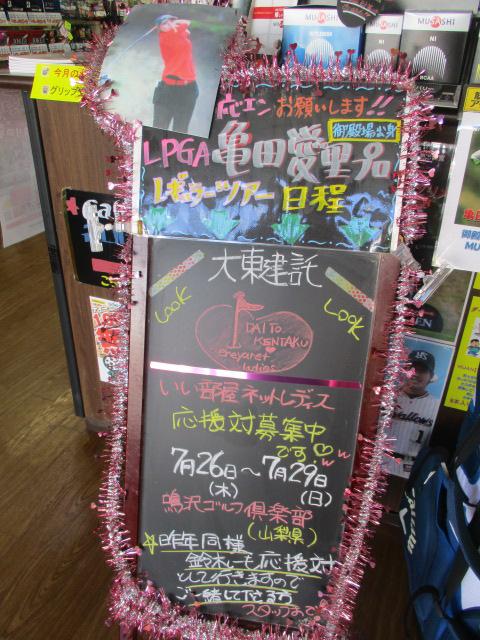 MUSASHI
MUSASHI
MUSASHI
NI
BCAA
今月の
グリップ
応エンお願いします!!
御殿場出身
LPGA 亀田愛里
レギュラーツアー 日程
大東建託
LOOK
LOOK
DAITO
KENTAKU
eheyanet
ladies
いい部屋ネットレディス
応援対募集中
です♡
7月26日~7月29日
(木) (日)
鳴沢ゴルフ倶楽部
(山梨県)
☆昨年同様
鈴木も応援対
として行きますので
ご一緒して下さる方
スタッフまで
Swallows
1